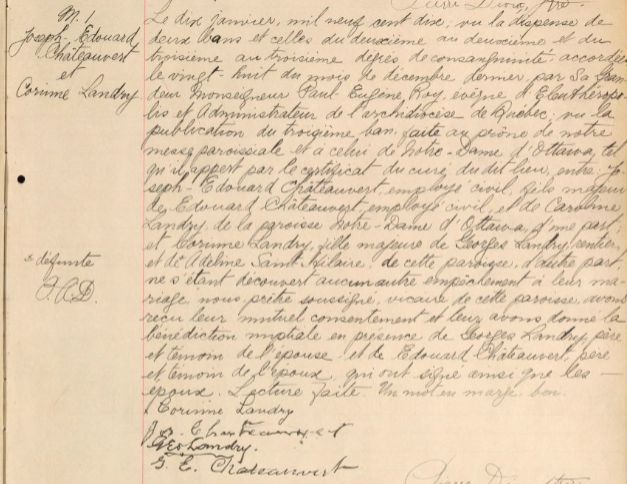 M. 1
Joseph-Edouard
Châteauvert
et
Corinne Landry
Le dix janvier, mil neuf cent dix; vu la dispense de
deux bans et celles du deuxième au deuxième et du
troisième au troisième degrés de consanguinité, accordées
le vingt-huit du mois de décembre dernier, par Sa Gran
deur Monseigneur Paul Eugène Roy, évêque d'Eleuthéropo-
lis et Administrateur de l'archidiocèse de Québec; vu la
publication du troisième ban, faite au prône de notre
messe paroissiale et à celui de Notre-Dame d'Ottawa, tel
qu'il appert par le certificat du curé du dit lieu, entre: Jo-
seph-Edouard Châteauvert, employé civil, fils majeur
de Edouard Châteauvert, employé civil, et de Caroline
Landry, de la paroisse Notre-Dame d'Ottawa, d'une part;
et Corinne Landry, fille majeure de Georges Landry, rentier,
et de Adelme Saint-Hilaire, de cette paroisse, d'autre part,
ne s'étant découvert aucun autre empêchement à leur ma-
riage, nous, prêtre soussigné, vicaire de cette paroisse, avons
reçu leur mutuel consentement et leur avons donné la
bénédiction nuptiale en présence de Georges Landry, père
et témoin de l'épouse, et de Edouard Châteauvert, père
et témoin de l'époux, qui ont signé ainsi que les
époux. Lecture faite. Un mot en marge, bon.
défunte
Corinne Landry
Jos. E. Chateauvert
Geo Landry.
G. E. Chateauvert